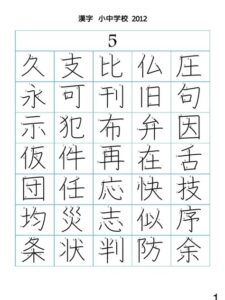 漢字 小中学校 2012
5
久 支 比 仏 圧
永 可 刊 旧 句
示 犯 布 弁 因
仮 件 再 在 舌
団 任 応 快 技
均 災 志 似 序
条 状 判 防 余
1